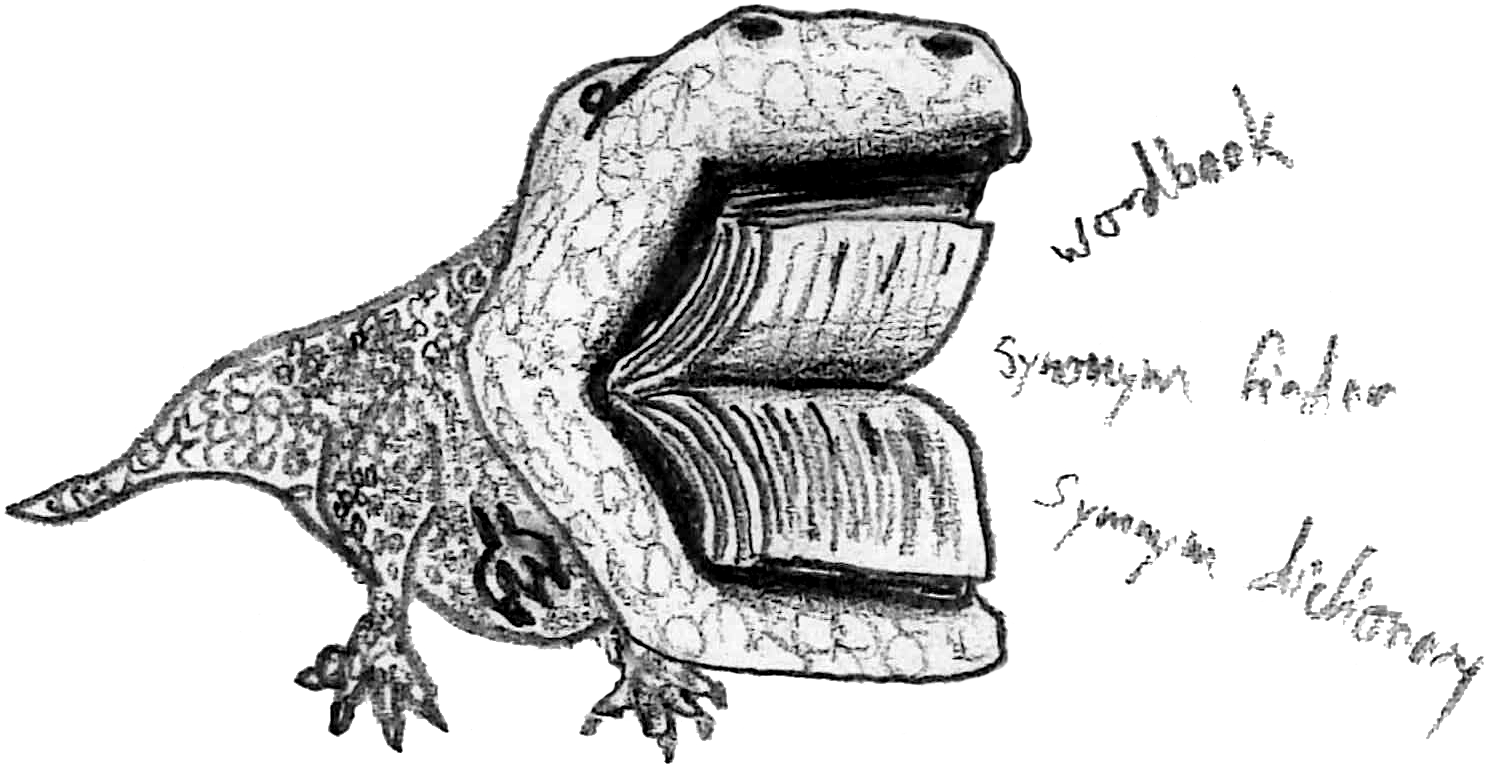 wordbook
Synonym finder
Synonym dictionary